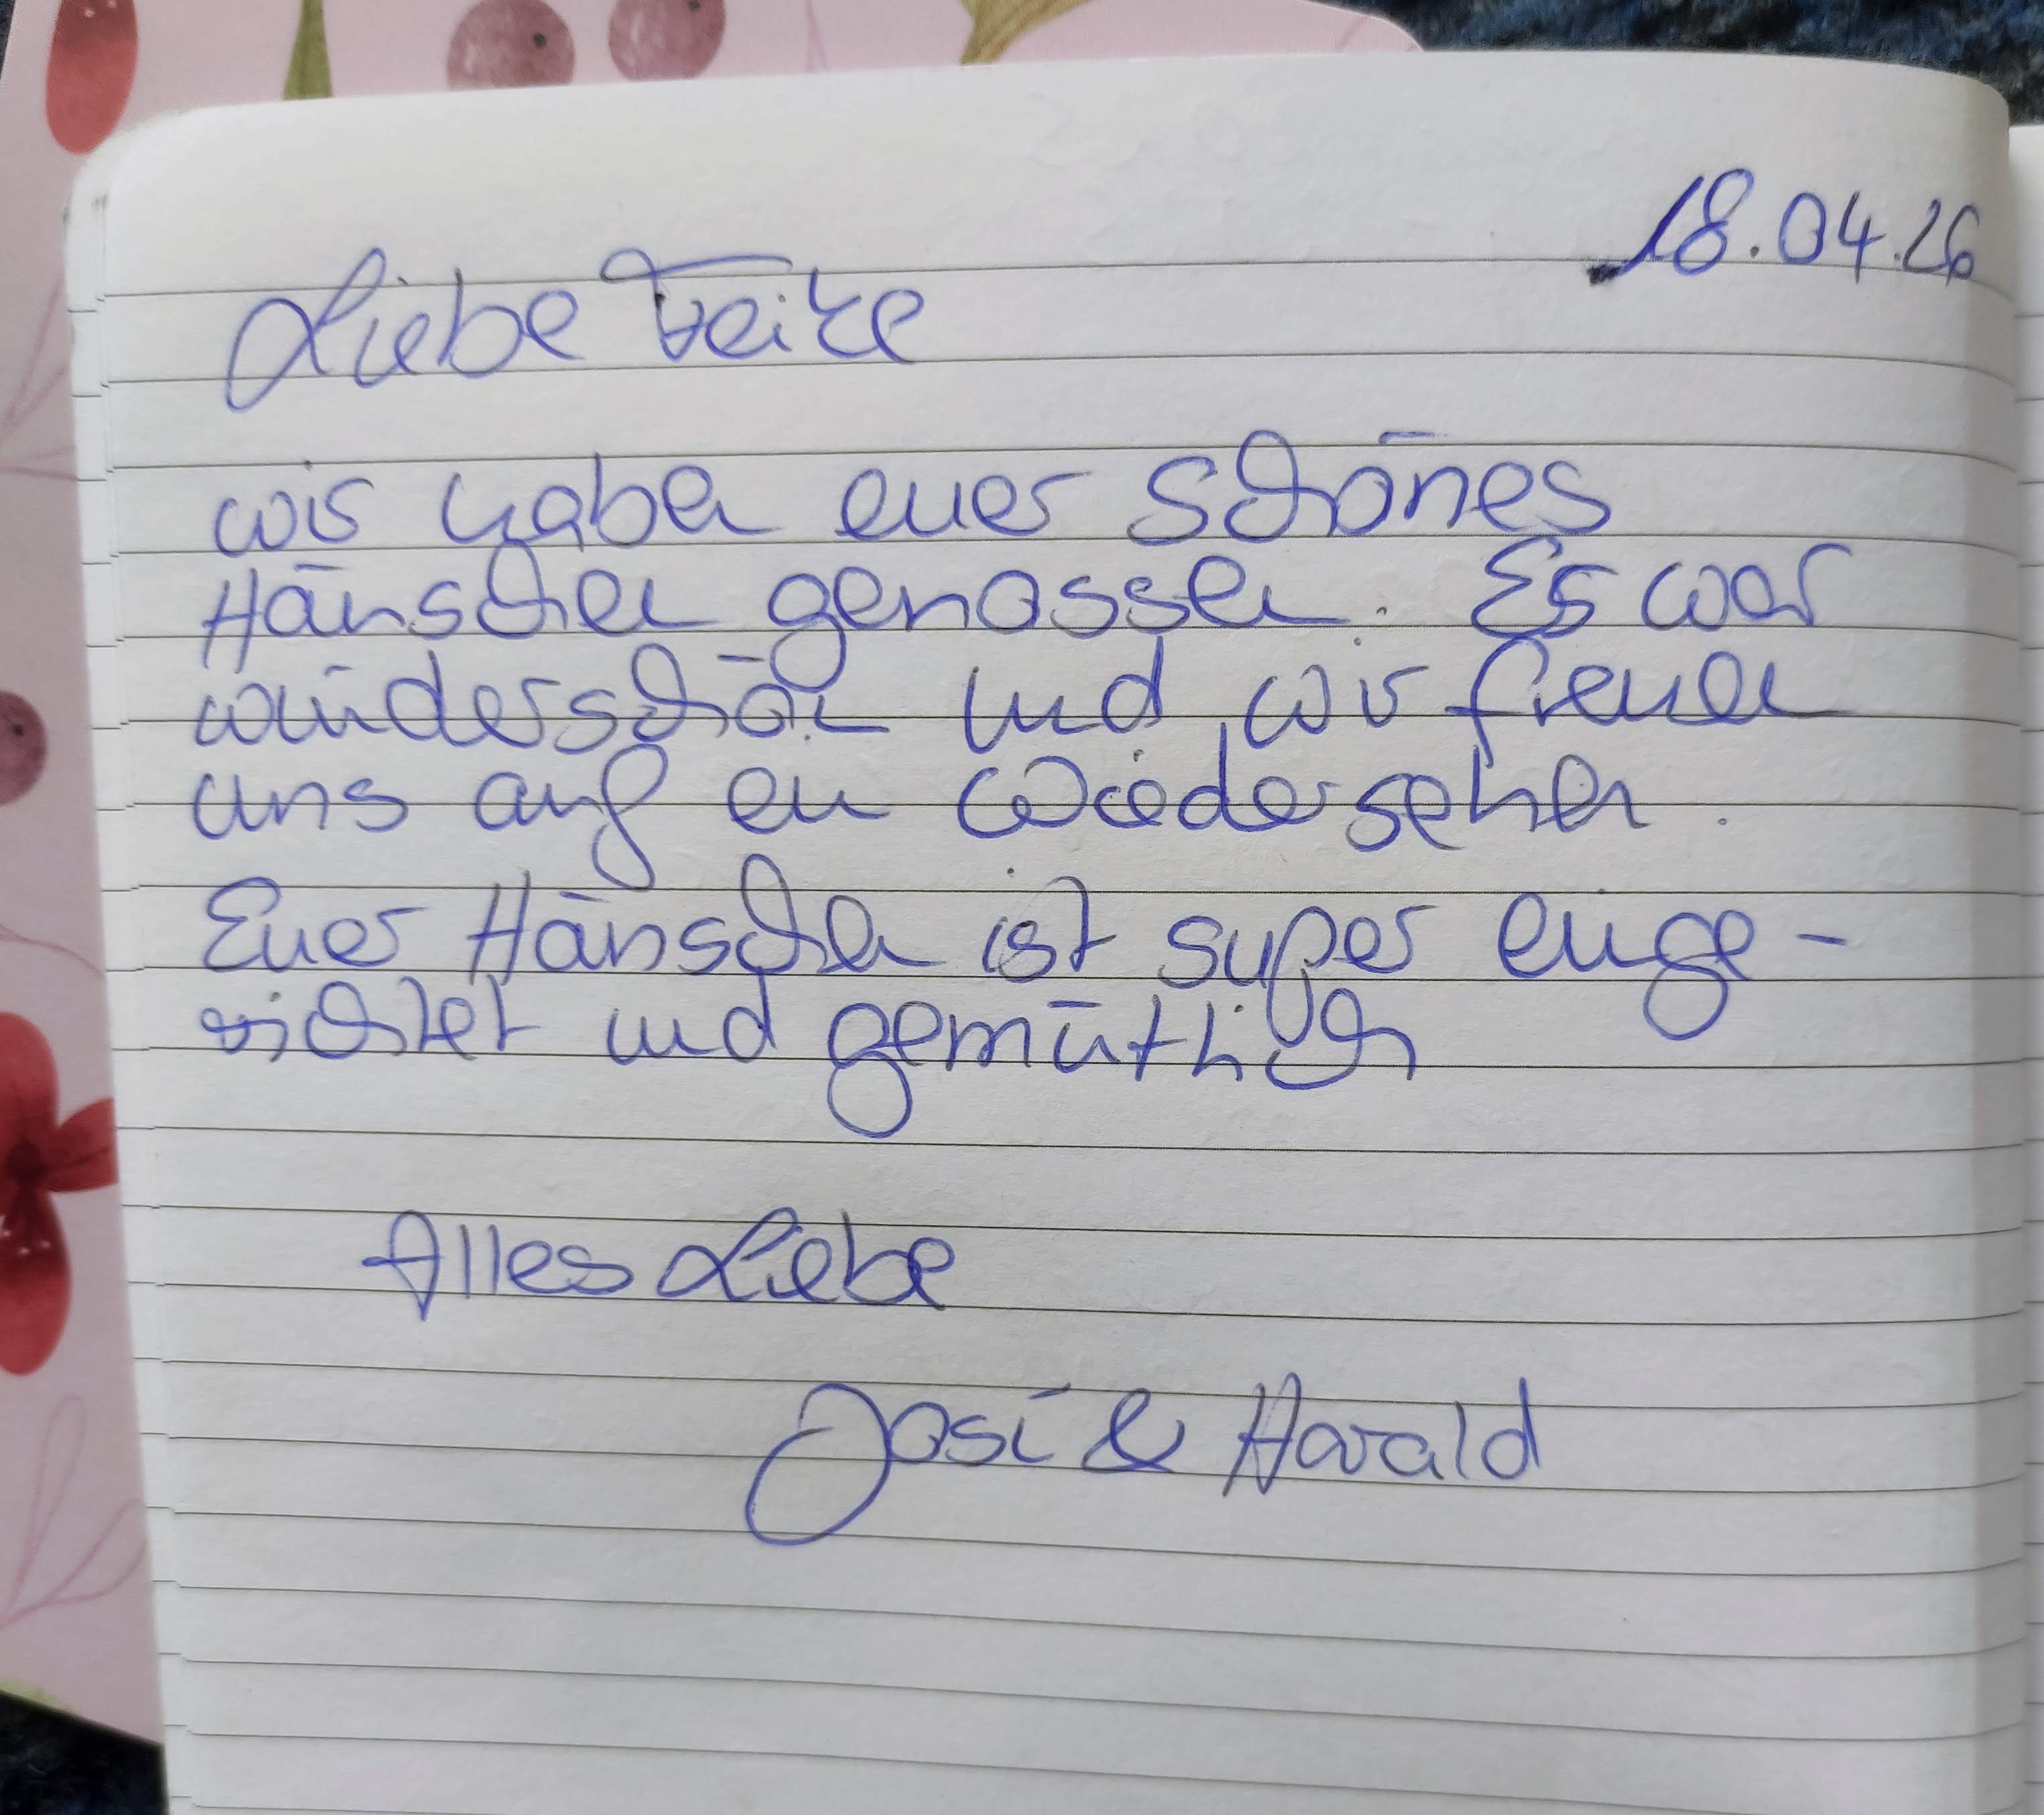 18.04.26
Liebe Feike
wir haben euer schönes
Häuschen genossen. Es war
wunderschön und wir freuen
uns auf ein Wiedersehen.
Euer Häuschen ist super einge-
richtet und gemütlich
Alles Liebe
Josi & Harald